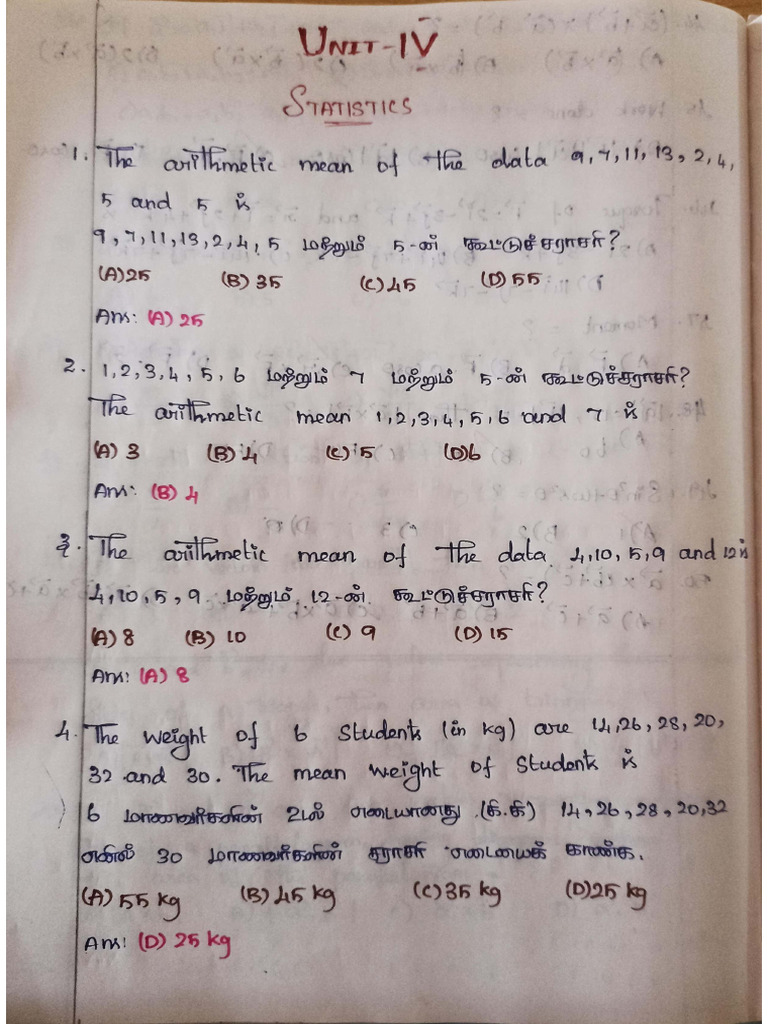 UNIT-IV
STATISTICS
1. The arithmetic mean of the data 9, 7, 11, 13, 2, 4,
5 and 5 is
9, 7, 11, 13, 2, 4, 5 மற்றும் 5-ன் கூட்டுச்சராசரி?
(A) 25 (B) 35 (C) 45 (D) 55
Ans: (A) 25
2. 1, 2, 3, 4, 5, 6 மற்றும் 7 மற்றும் 5-ன் கூட்டுச்சராசரி?
The arithmetic mean 1, 2, 3, 4, 5, 6 and 7 is
(A) 3 (B) 4 (C) 5 (D) 6
Ans: (B) 4
3. The arithmetic mean of the data 4, 10, 5, 9 and 12 is
4, 10, 5, 9 மற்றும் 12-ன் கூட்டுச்சராசரி?
(A) 8 (B) 10 (C) 9 (D) 15
Ans: (A) 8
4. The weight of 6 students (in kg) are 14, 26, 28, 20,
32 and 30. The mean weight of Students is
6 மாணவர்களின் உடல் எடையானது (கி.கி) 14, 26, 28, 20, 32
எனில் 30 மாணவர்களின் சராசரி எடையைக் காண்க.
(A) 55 kg (B) 45 kg (C) 35 kg (D) 25 kg
Ans: (D) 25 kg